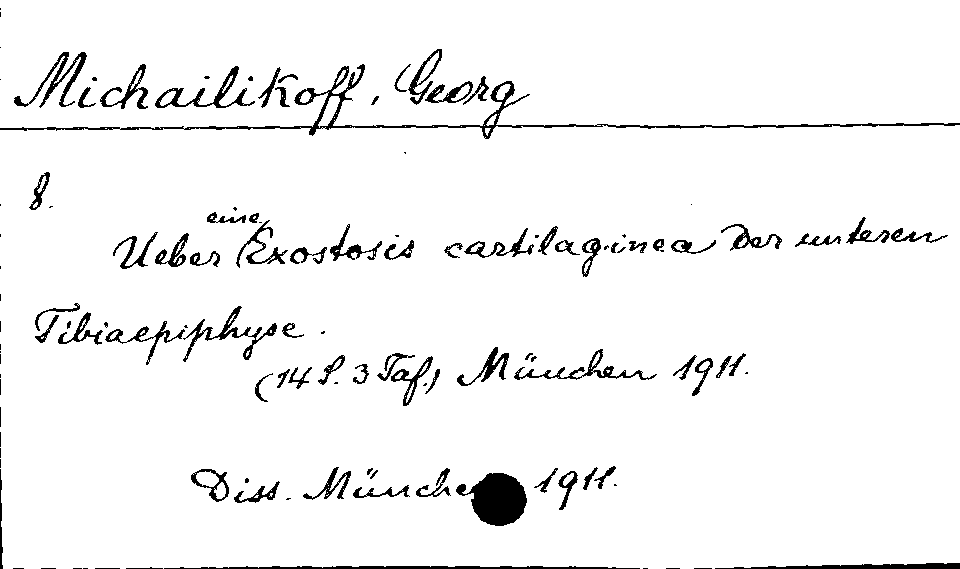 Michailikoff, Georg
8.
Ueber eine Exostosis cartilaginea der unteren
Tibiaepiphyse.
(14 S. 3 Taf.) München 1911.
Diss. München 1911.